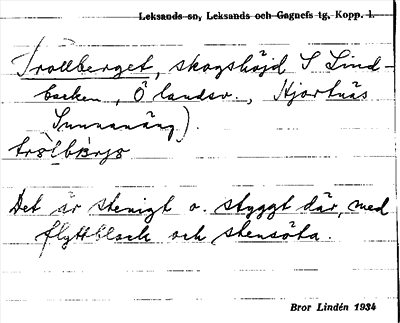 Leksands sn, Leksands och Gagnefs tg, Kopp. l.
Trollberget, skogshöjd S Lind-
backen, Ö landsv., Hjortnäs
Sunnanäng).
Det är stenigt o. styggt där, med
flyttblock och stensöta.
Bror Lindén 1934